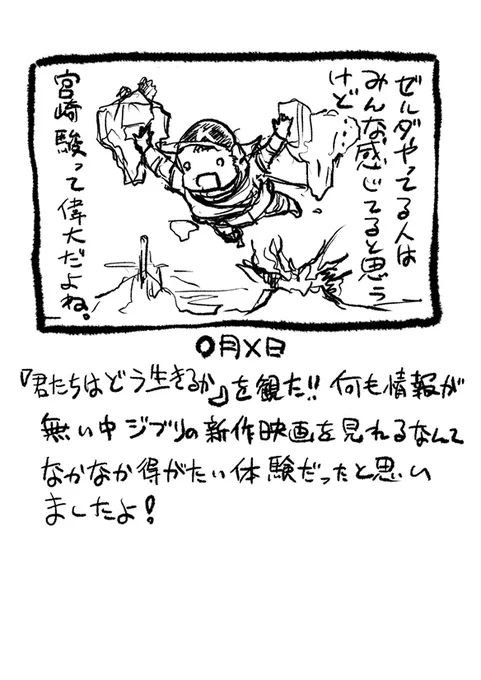 ゼルダやってる人は
みんな感じてると思う
けど
宮崎駿って偉大だよね。
〇月×日
『君たちはどう生きるか』を観た!! 何も情報が
無い中ジブリの新作映画を見れるなんて
なかなか得がたい体験だったと思い
ましたよ!